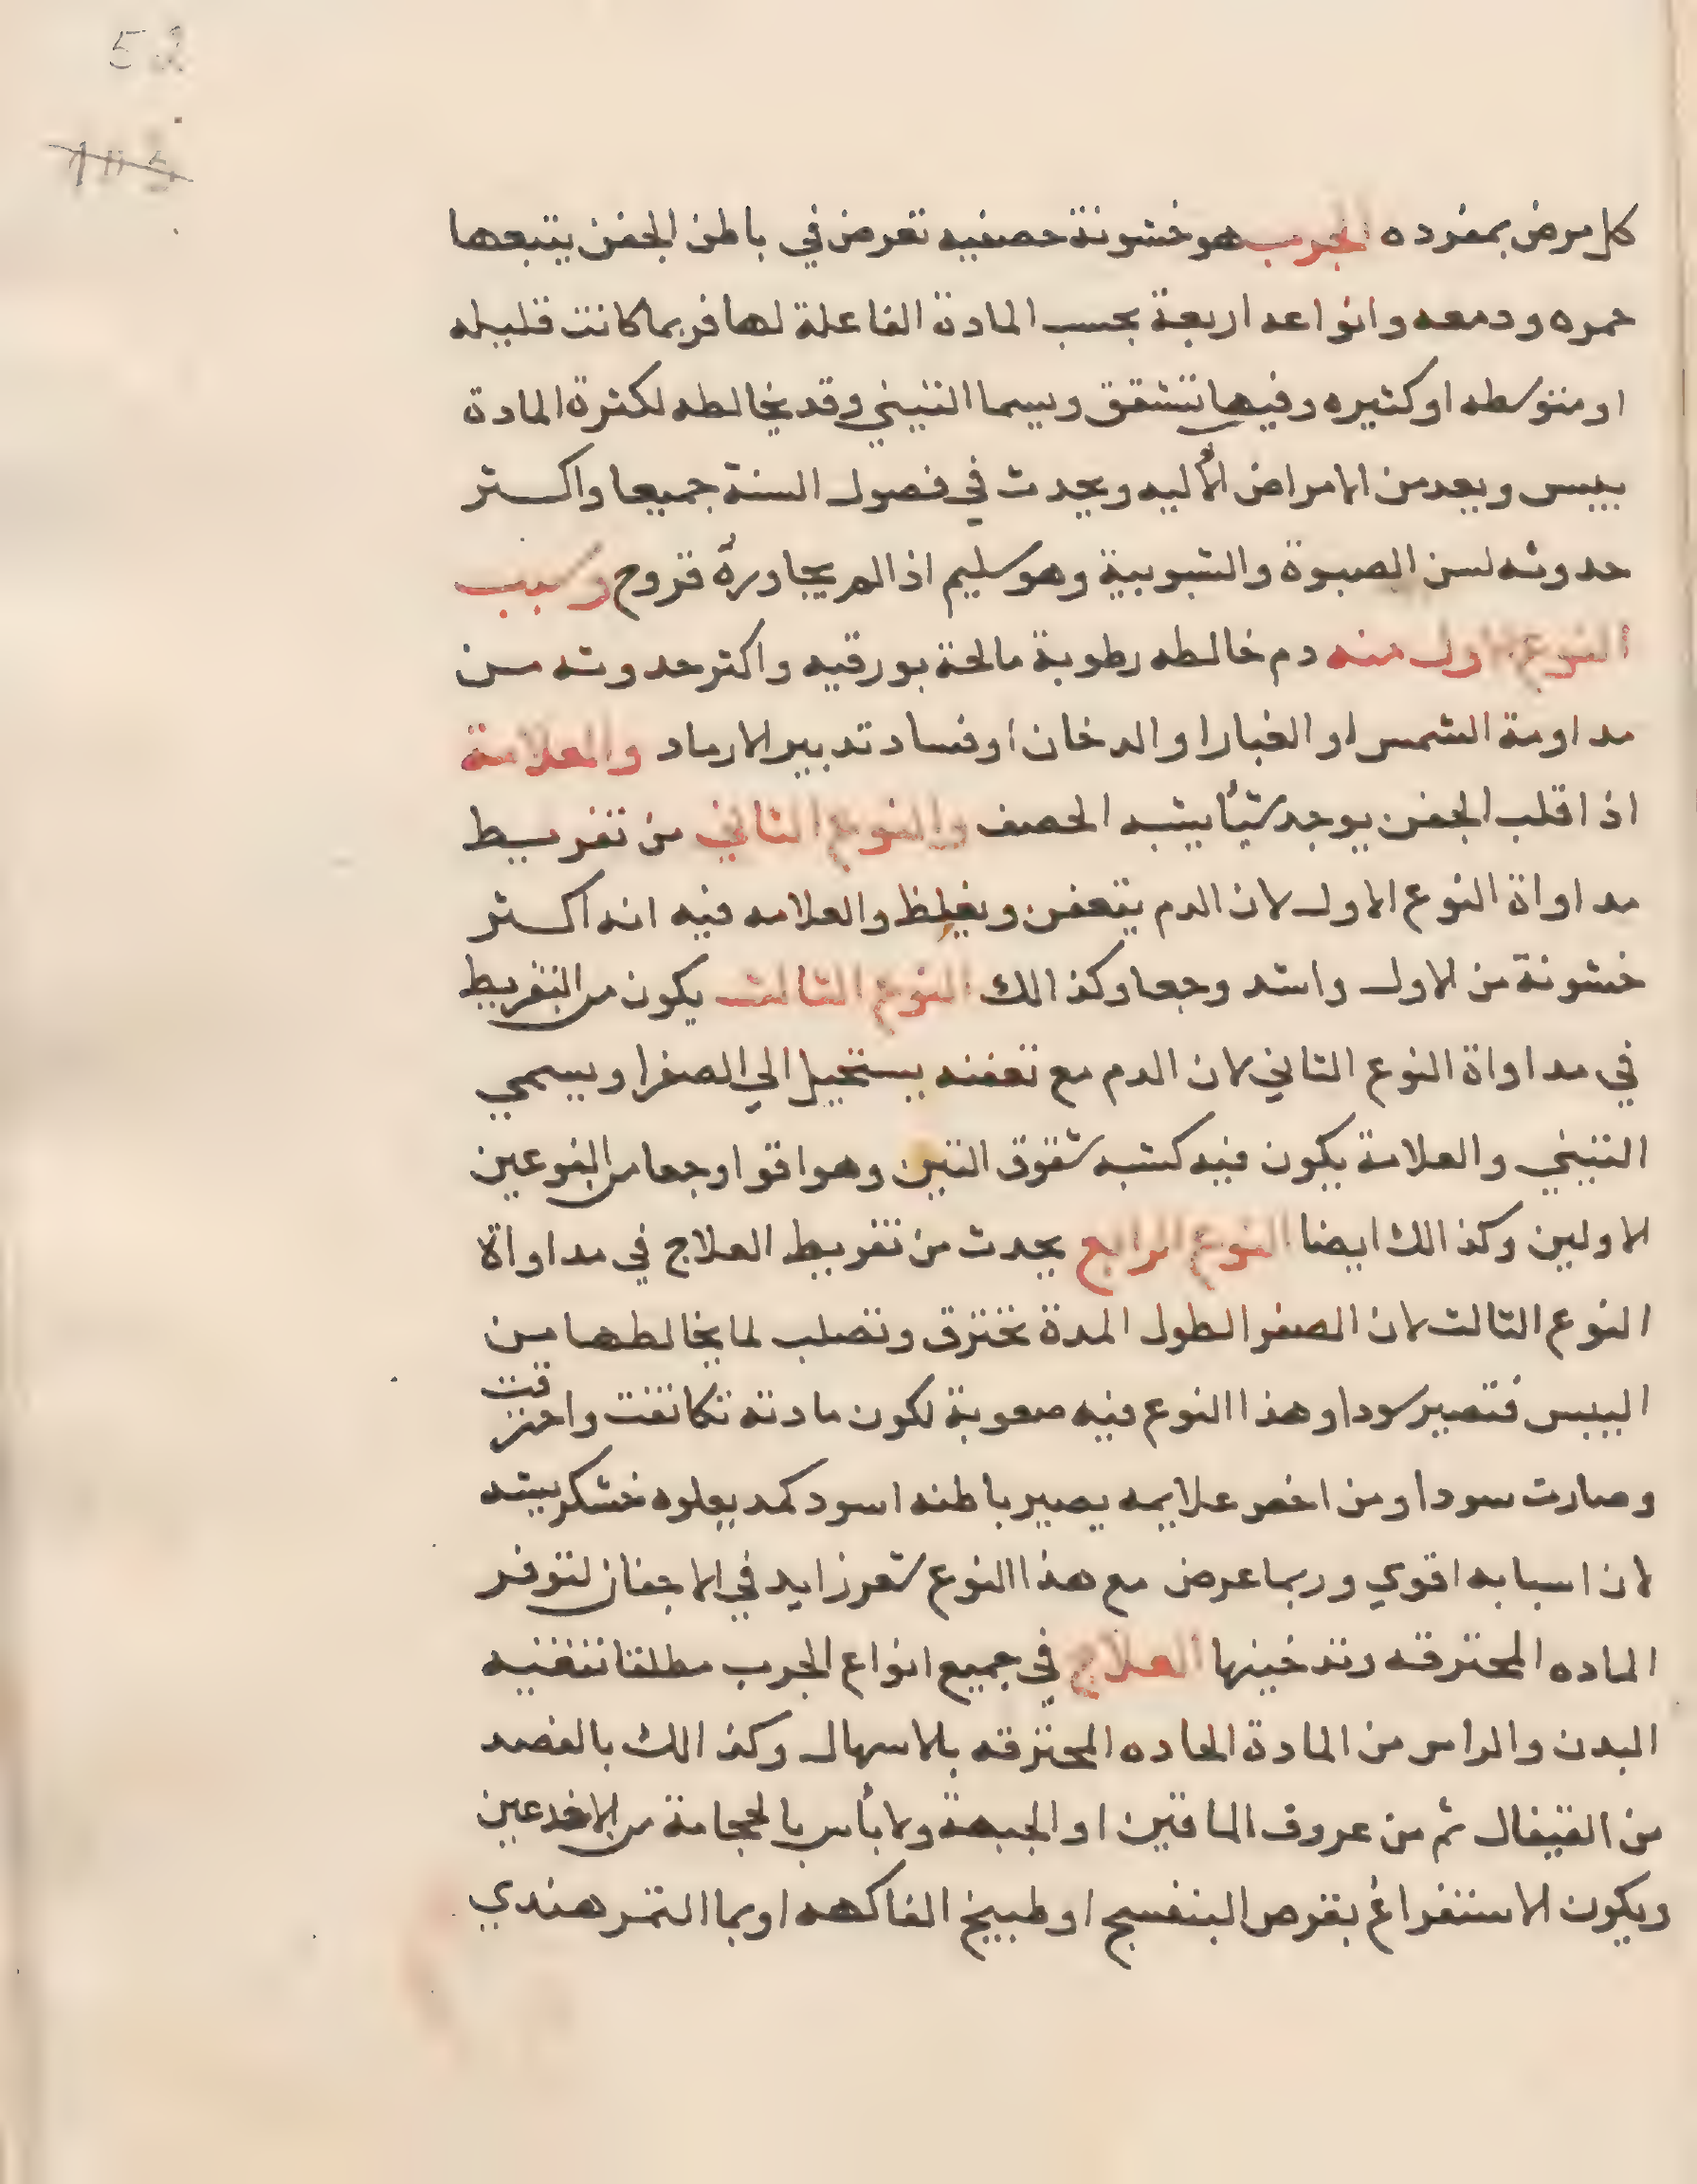 52
كل مرض بمفرده الجرب هو خشونة حصفيه تعرض في باطن الجفن يتبعها
حمره ودمعه وانواعه اربعة بحسب المادة الفاعلة لها فربما كانت قليله
او متوسطه او كثيره وفيها تتشقق وسيما التيني وقد يخالطه لكثرة المادة
يبس ويعد من الامراض الألية ويحدث في فصول السنة جميعا واكثر
حدوثه لسن الصبوة والشبوبية وهو سليم اذا لم يجاوره قروح وسبب
النوع الاول منه دم خالطه رطوبة مالحة بورقيه واكتر حدوته من
مداومة الشمس او الغبار او الدخان او فساد تدبير الارماد والعلامة
اذا قلب الجفن يوجد شيأ يشبه الحصف والنوع الثاني من تفريط
مداواة النوع الاول لان الدم يتعفن ويغلظ والعلامه فيه انه اكثر
خشونة من الاول واشد وجعا وكذالك النوع التالت يكون من التفريط
في مداواة النوع التاني لان الدم مع تعفنه يستحيل الي الصفرا ويسمي
التيني والعلامة يكون فيه كشبه شقوق التين وهو اقوا وجعا من النوعين
الاولين وكذالك ايضا النوع الرابع يحدث من تفريط العلاج في مداواة
النوع التالت لان الصفرا لطول المدة تحترق وتصلب لما يخالطها من
اليبس فتصير سودا وهذا النوع فيه صعوبة لكون مادته تكاتفت واحترقت
وصارت سودا ومن اخص علايمه يصير باطنه اسود كمد يعلوه خشكريشه
لان اسبابه اقوي وربما عرض مع هذا النوع شعر زايد في الاجفان لتوفر
الماده المحترقه وتدخينها العلاج في جميع انواع الجرب مطلقا تنقيه
البدن والراس من المادة الحاده المحترقه بلاسهال وكذالك بالفصد
من القيفال ثم من عروق الماقين او الجبهة ولا بأس بالحجامة من الاخدعين
ويكون الاستفراغ بقرص البنفسج او طبيخ الفاكهه او بما التمر هندي